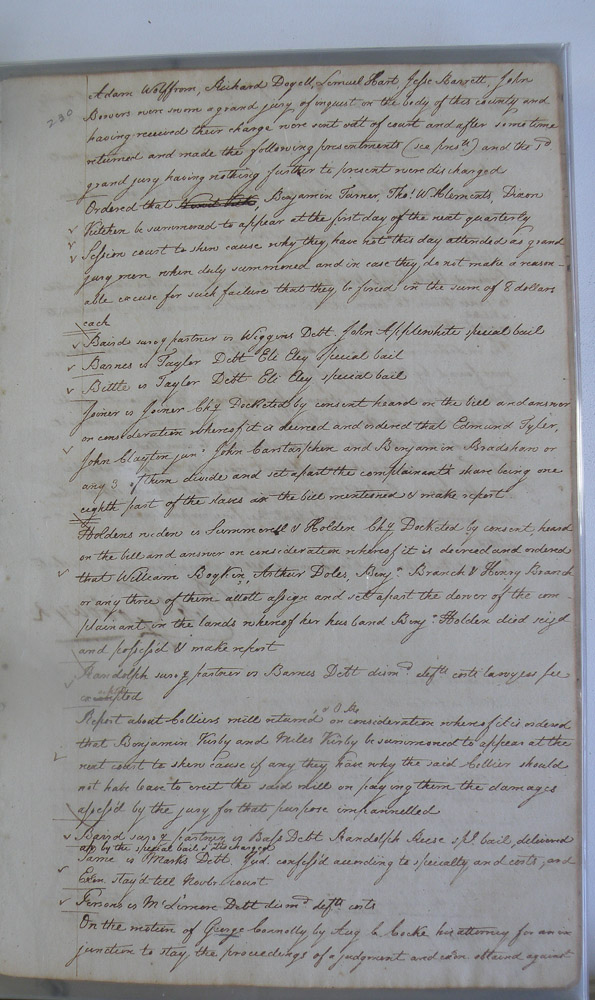 230
Adam Wolffrom, Richard Dogett, Lemuel Hart, Jesse Barrett, John
Bowers were sworn a grand jury of inquest for the body of this county and
having received their charge were sent out of court and after sometime
returned and made the following presentments (see pres.ts) and the sd.
grand jury having nothing further to present were discharged
Ordered that Benjamin Turner, Thos. W. Clements, Dixon
Kitchen be summoned to appear at the first day of the next quarterly
Session court to shew cause why they have not this day attended as grand
jury men when duly summoned and in case they do not make a reason-
able excuse for such failure that they be fined in the sum of 8 dollars
each
Baird surv.g partner vs Wiggins Debt. John Applewhite special bail
Barnes vs Taylor Debt Eli Eley special bail
Bittle vs Taylor Debt Eli Eley special bail
Joiner vs Joiner Chy Docketed by consent heard on the bill and answer
on consideration whereof it is decreed and ordered that Edmund Tyler,
John Clayton junr. John and Benjamin Bradshaw or
any 3 of them divide and set apart the complainants share being one
eighth part of the slaves in the bill mentioned & make report
Holdens widow vs Summerell & Holden Chy Docketed by consent, heard
on the bill and answer on consideration whereof it is decreed and ordered
that William Boykin, Arthur Doles, Benjn. Branch & Henry Branch
or any three of them allott assign and set apart the dower of the com-
plainant in the lands whereof her husband Benjn. Holden died seizd
and possess'd & make report
Randolph surv.g partner vs Barnes Debt dismd. defts. costs lawyers fee
excepted
Report about Colliers mill returned on consideration whereof it is ordered
that Benjamin Kirby and Miles Kirby be summoned to appear at the
next court to shew cause if any they have why the said Collier should
not have leave to erect the said mill on paying them the damages
assess'd by the jury for that purpose impannelled
Baird surv.g partner vs Bass Debt Randolph Reese spl. bail, delivered
up by the special bail & discharged
Same vs Marks Debt. Jud. confess'd according to specialty and costs, and
Exon. stay'd till Novbr. court
Persons vs McLemore Debt dismd. defts. costs
On the motion of George Connolly by Aug C. Cocke his attorney for an in
junction to stay the proceedings of a judgment and exon obtaind against